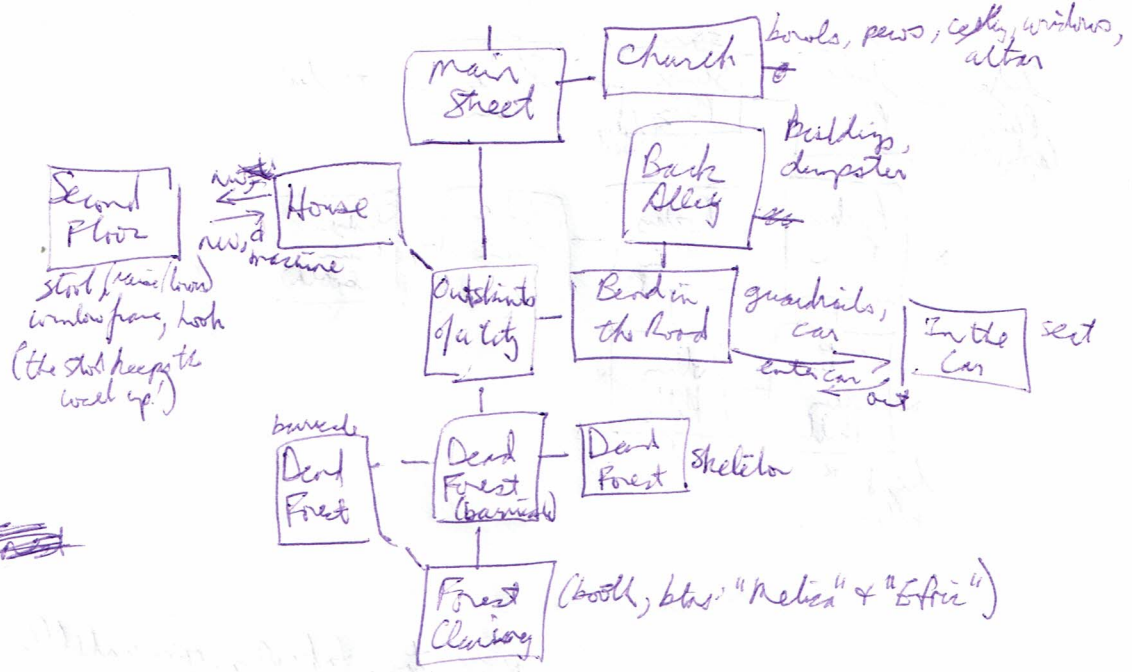 Main
Street
Church
bowls, pews, ceiling, windows,
altar
Back
Alley
Buildings,
dumpster
Second
Floor
House
nw, d
machine
stool, (raise/lower)
window frame, hook
(the stool keeps the
up!)
Outskirts
of a City
Bend in
the Road
guardrails,
car
enter car
out
In the
Car
seat
barricade
Dead
Forest
Dead
Forest
(barricade)
Dead
Forest
Skeleton
Forest
Clearing
(booth, btns: "Melica" & "Efriz")